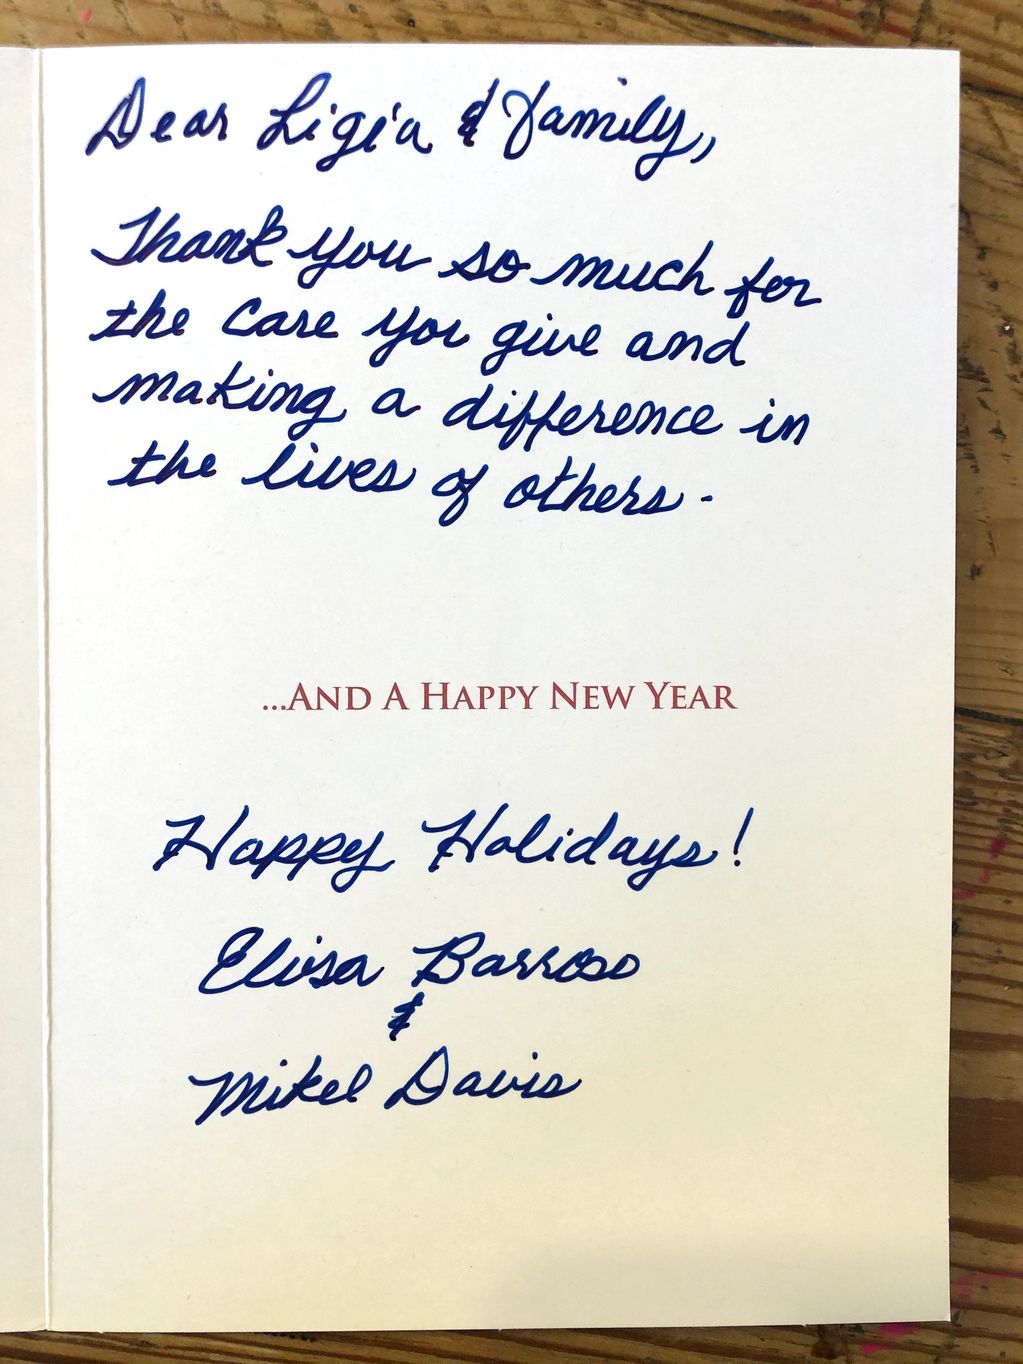 Dear Ligia & family,
Thank you so much for
the care you give and
making a difference in
the lives of others.
...And A Happy New Year
Happy Holidays!
Elisa Barroso
&
Mikel Davis